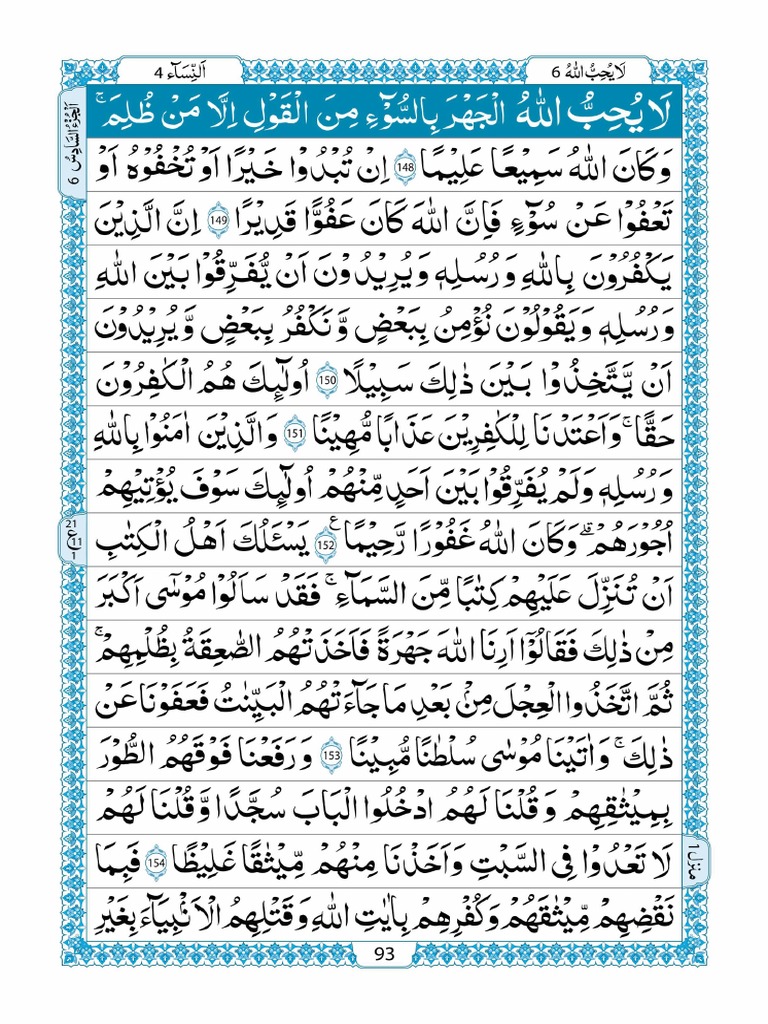 لَا يُحِبُّ اللهُ 6
اَلنِّسَآء 4
اَلْجُزْءُ السَّادِسُ 6
لَا يُحِبُّ اللهُ الْجَهْرَ بِالسُّوْٓءِ مِنَ الْقَوْلِ اِلَّا مَنْ ظُلِمَ ۚ
وَكَانَ اللهُ سَمِيْعًا عَلِيْمًا 148 اِنْ تُبْدُوْا خَيْرًا اَوْ تُخْفُوْهُ اَوْ
تَعْفُوْا عَنْ سُوْٓءٍ فَاِنَّ اللهَ كَانَ عَفُوًّا قَدِيْرًا 149 اِنَّ الَّذِيْنَ
يَكْفُرُوْنَ بِاللهِ وَرُسُلِهٖ وَيُرِيْدُوْنَ اَنْ يُّفَرِّقُوْا بَيْنَ اللهِ
وَرُسُلِهٖ وَيَقُوْلُوْنَ نُؤْمِنُ بِبَعْضٍ وَّنَكْفُرُ بِبَعْضٍ وَّيُرِيْدُوْنَ
اَنْ يَّتَّخِذُوْا بَيْنَ ذٰلِكَ سَبِيْلًا 150 اُولٰٓئِكَ هُمُ الْكٰفِرُوْنَ
حَقًّا ۚ وَاَعْتَدْنَا لِلْكٰفِرِيْنَ عَذَابًا مُّهِيْنًا 151 وَالَّذِيْنَ اٰمَنُوْا بِاللهِ
وَرُسُلِهٖ وَلَمْ يُفَرِّقُوْا بَيْنَ اَحَدٍ مِّنْهُمْ اُولٰٓئِكَ سَوْفَ يُؤْتِيْهِمْ
اُجُوْرَهُمْ ۗ وَكَانَ اللهُ غَفُوْرًا رَّحِيْمًا 152 ع يَسْـَٔلُكَ اَهْلُ الْكِتٰبِ
اَنْ تُنَزِّلَ عَلَيْهِمْ كِتٰبًا مِّنَ السَّمَآءِ ۚ فَقَدْ سَاَلُوْا مُوْسٰٓى اَكْبَرَ
مِنْ ذٰلِكَ فَقَالُوْٓا اَرِنَا اللهَ جَهْرَةً فَاَخَذَتْهُمُ الصّٰعِقَةُ بِظُلْمِهِمْ ۚ
ثُمَّ اتَّخَذُوا الْعِجْلَ مِنْۢ بَعْدِ مَا جَآءَتْهُمُ الْبَيِّنٰتُ فَعَفَوْنَا عَنْ
ذٰلِكَ ۚ وَاٰتَيْنَا مُوْسٰى سُلْطٰنًا مُّبِيْنًا 153 وَرَفَعْنَا فَوْقَهُمُ الطُّوْرَ
بِمِيْثٰقِهِمْ وَقُلْنَا لَهُمُ ادْخُلُوا الْبَابَ سُجَّدًا وَّقُلْنَا لَهُمْ
لَا تَعْدُوْا فِى السَّبْتِ وَاَخَذْنَا مِنْهُمْ مِّيْثٰقًا غَلِيْظًا 154 فَبِمَا
نَقْضِهِمْ مِّيْثٰقَهُمْ وَكُفْرِهِمْ بِاٰيٰتِ اللهِ وَقَتْلِهِمُ الْاَنْۢبِيَآءَ بِغَيْرِ
منزل 1
93